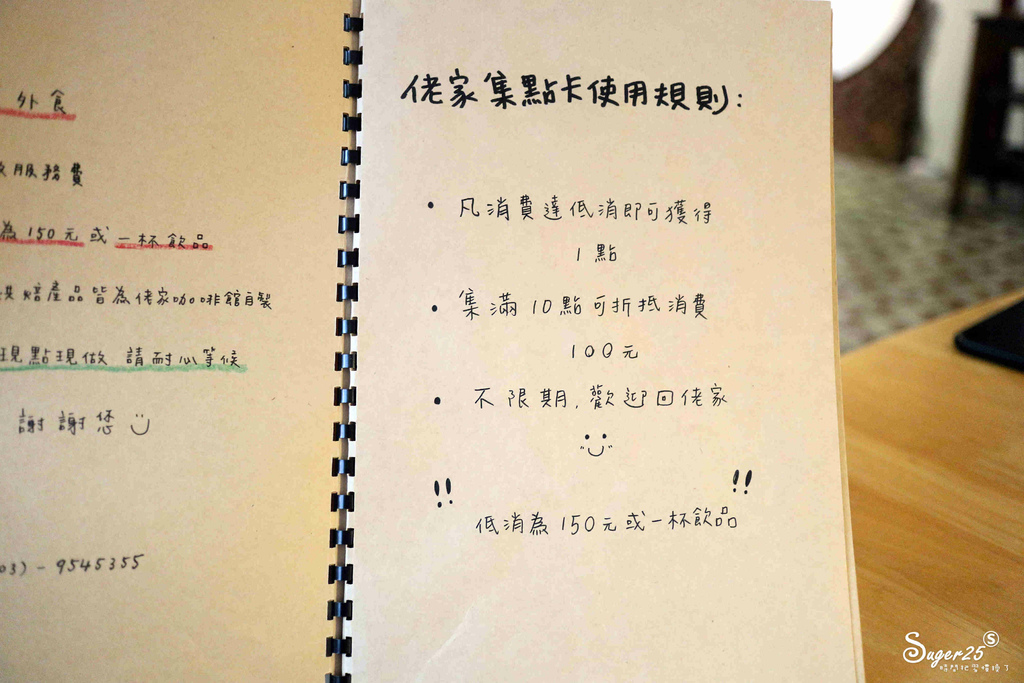 外食
服務費
為150元或一杯飲品
烘焙產品皆為佬家咖啡館自製
現點現做 請耐心等候
謝謝您
03)-9545355
佬家集點卡使用規則:
• 凡消費達低消即可獲得
1點
• 集滿10點可折抵消費
100元
• 不限期,歡迎回佬家
!! !!
低消為150元或一杯飲品
Suger25 S
時間把習慣換了